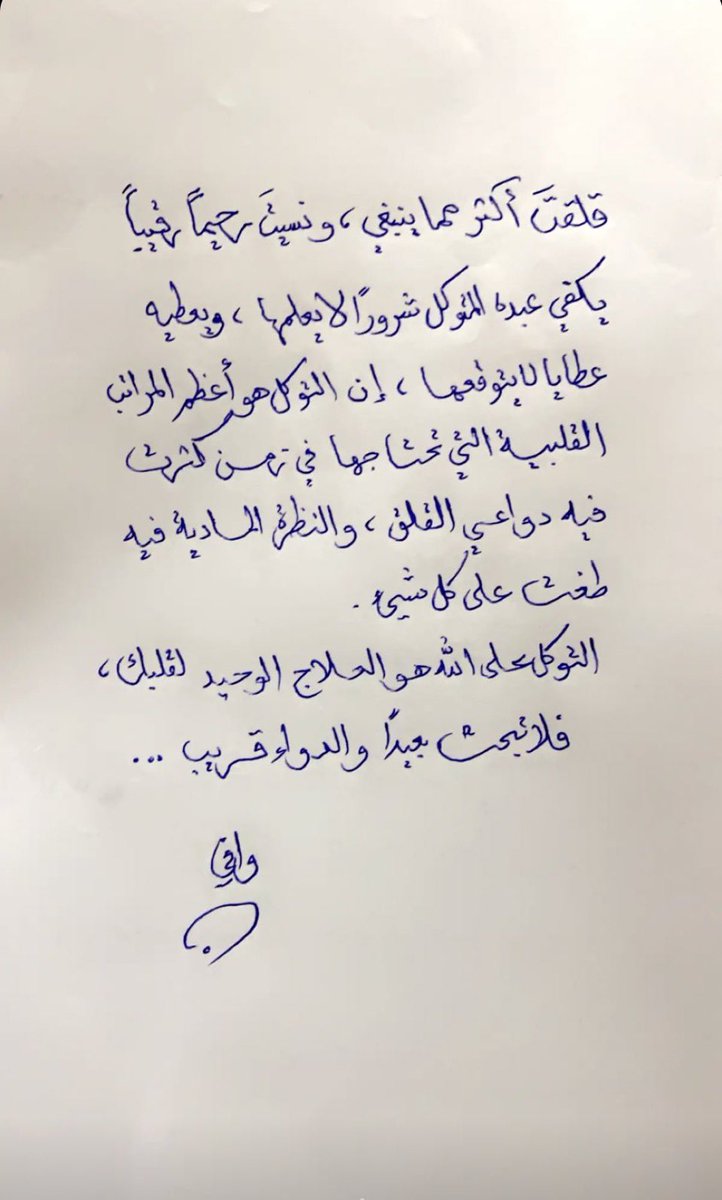 قلقتَ أكثر مما ينبغي، ونسيتَ رحيماً رقيباً
يكفي عبده المتوكل شرورًا لا يعلمها، ويعطيه
عطايا لايتوقعها، إن التوكل هو أعظم المراتب
القلبية التي تحتاجها في زمن كثرت
فيه دواعي القلق، والنظرة المادية فيه
طغت على كل شيء.
التوكل على الله هو العلاج الوحيد لقلبك،
فلا تبحث بعيدًا والدواء قريب ...
وافي